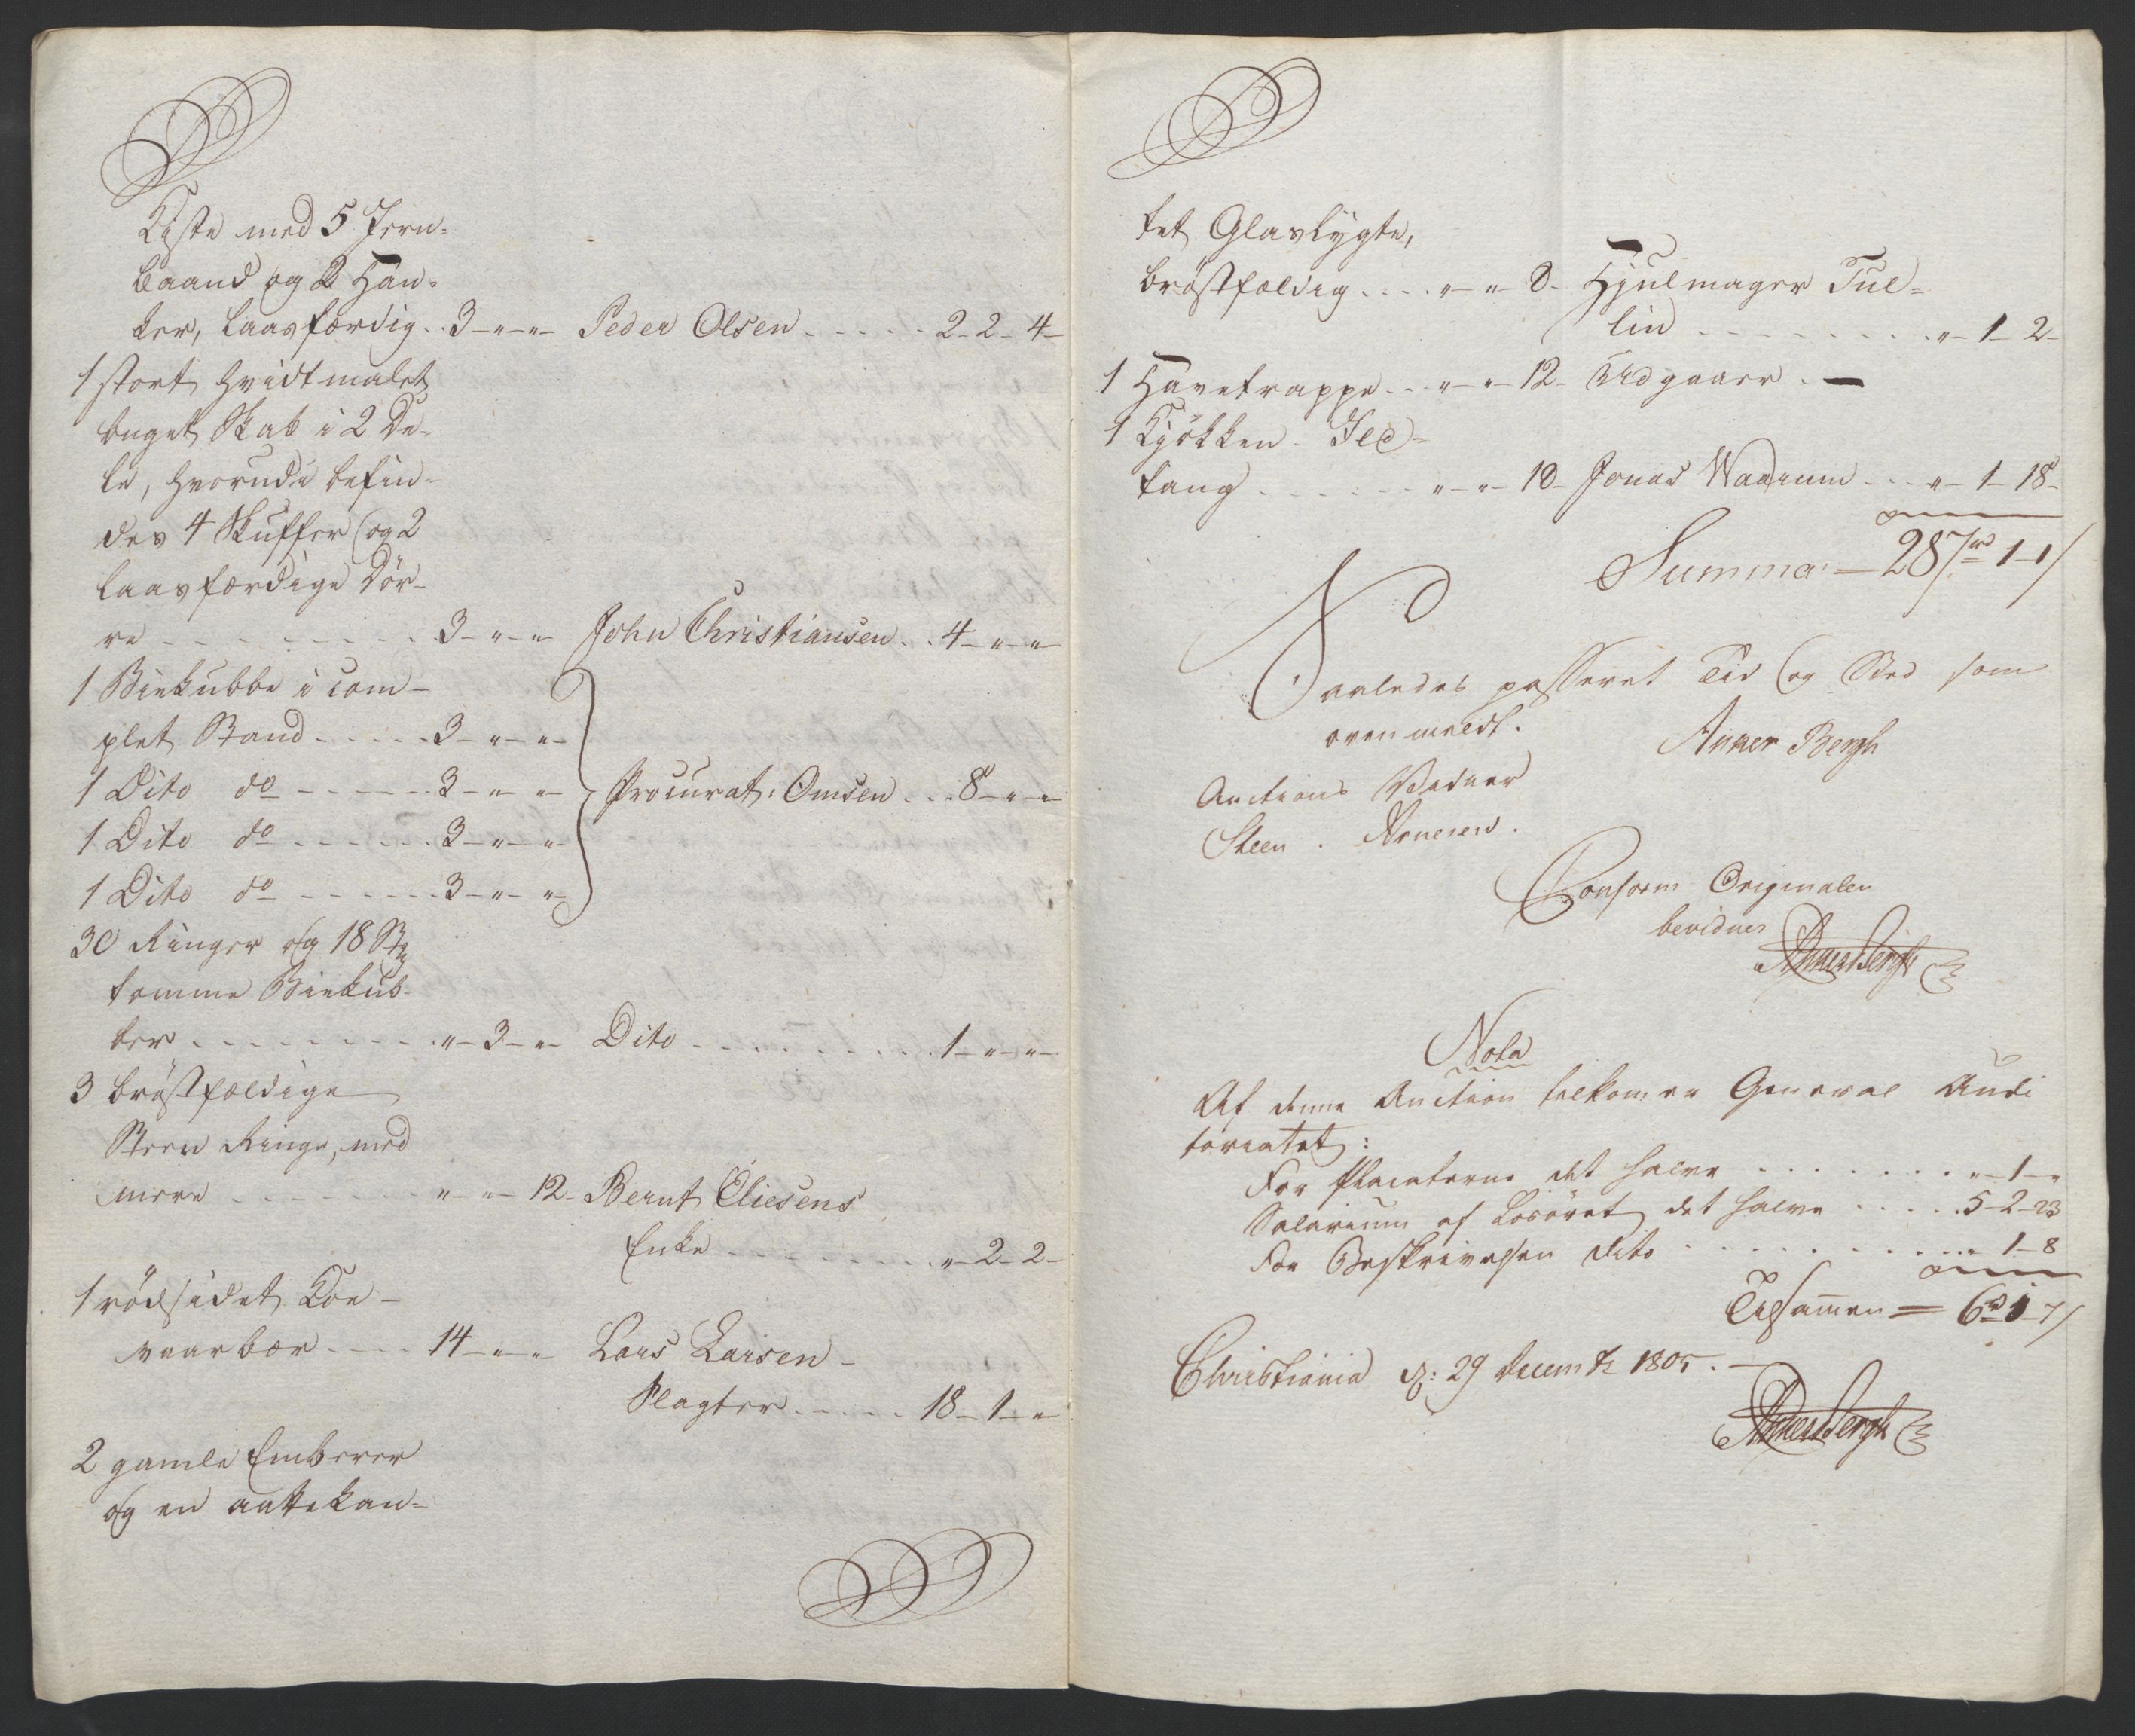 Kiste med 5 Jern-
baand og 2 Han-
ker, laasfærdig . . 3 - " - " - Peder Olsen . . . . . 2 - 2 - 4 -
1 stort hvidtmalet
buget Skab i 2 De-
le, hvorudi befin-
des 4 Skuffer og 2
laasfærdige Dör-
re . . . . . . . . 3 - " - " John Christiansen . . 4 - " - "
1 Biekubbe i com-
plet Stand . . . . . 3 - " - " -
1 Dito do . . . . . . 3 - " - " Procurat: Omsen . . . 8 - " - "
1 Dito do . . . . . . 3 - " - "
1 Dito do . . . . . . 3 - " - " -
30 Ringer og 18 St:
tomme Biekub-
ber . . . . . . . . . " - 3 - " - Dito . . . . . . . . . 1 - " - " -
3 bröstfældige
Steen Ringe, med
mere . . . . . . . " - " - 12 - Bernt Eliesens
Enke . . . . . . . . " - 2 - 2 -
1 rödsidet Koe -
. . . . 14 - " - " Lars Larsen -
Slagter . . . . . 18 - 1 - "
2 gamle Emberer
og en aattekan-
tet Glaslygte,
bröstfældig . . . . " - " 8 - Hjulmager Tul-
lin . . . . . . . . . " - 1 - 2 -
1 Havetrappe . . . " - " - 12 - Udgaaer . -
1 Kjökken- Ild-
tang . . . . . . " - " - 10 - Jonas Waarum . . . " - 1 - 18 -
Summa = 287 rd 1 - 1 /
Saaledes passeret Tid og Sted som
ovenmeldt.
Anker Bergh
Auctions Vidner
Steen . Arnesen .
Conform Originalen
bevidner
Anker Bergh
Nota
Af denne Auction tilkommer General Audi
toriatet :
For Placaterne det halve . . . . . . . " - 1 - "
Salarium af Losöret det halve . . . . . 5 - 2 - 23
For Beskrivelsen dito . . . . . . . . . . " 1 - 8
Tilsammen = 6 rd 1 - 7 /
Christiania d: 29 Decembr 1805 . -
Anker Bergh